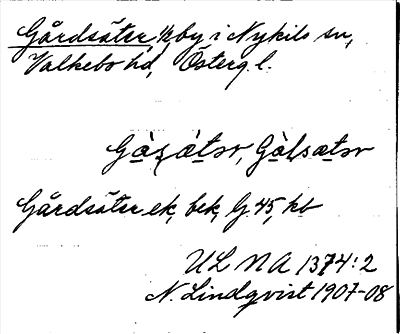 Gårdsäter, by i Nykils sn,
Valkebo hd, Österg. l.
Gårdsäter ek, bek, G. 45, kb
ULMA 1374:2
N. Lindqvist 1907-08